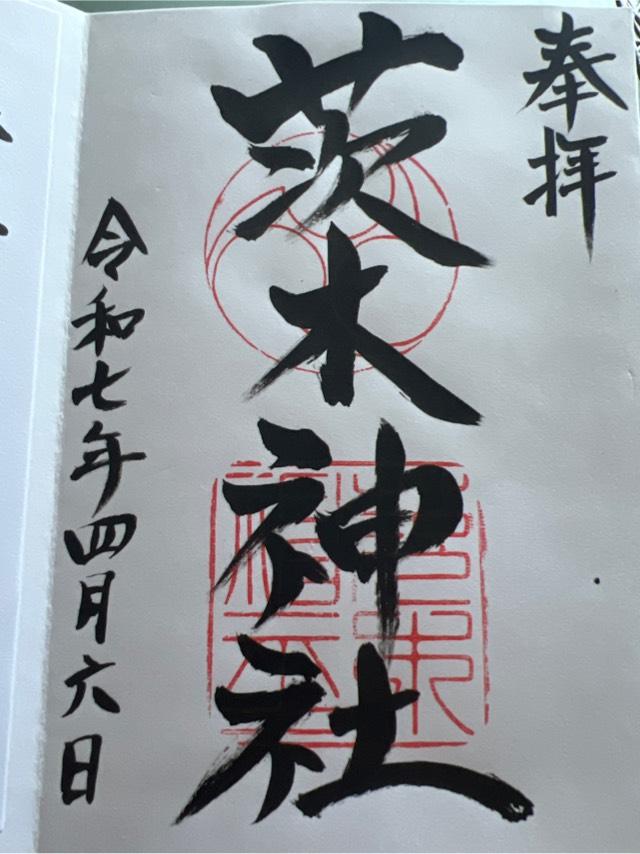 奉拝
茨木神社
令和七年四月六日